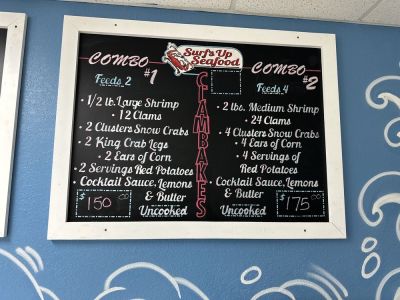 Surf's Up
Seafood
CLAMBAKES
COMBO #1
Feeds 2
• 1/2 lb. Large Shrimp
• 12 Clams
• 2 Clusters Snow Crabs
• 2 King Crab Legs
• 2 Ears of Corn
• 2 Servings Red Potatoes
• Cocktail Sauce, Lemons
& Butter
$150.00
Uncooked
COMBO #2
Feeds 4
• 2 lbs. Medium Shrimp
• 24 Clams
• 4 Clusters Snow Crabs
• 4 Ears of Corn
• 4 Servings of
Red Potatoes
• Cocktail Sauce, Lemons
& Butter
Uncooked
$175.00